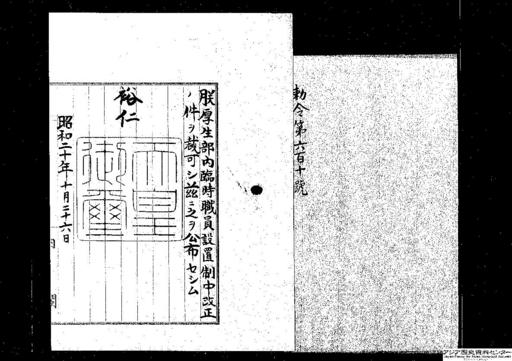 勅令第六百十號
朕厚生部內臨時職員設置制中改正
ノ件ヲ裁可シ茲ニ之ヲ公布セシム
裕仁
天皇御璽
昭和二十年十月二十六日
内閣
アジア歴史資料センター